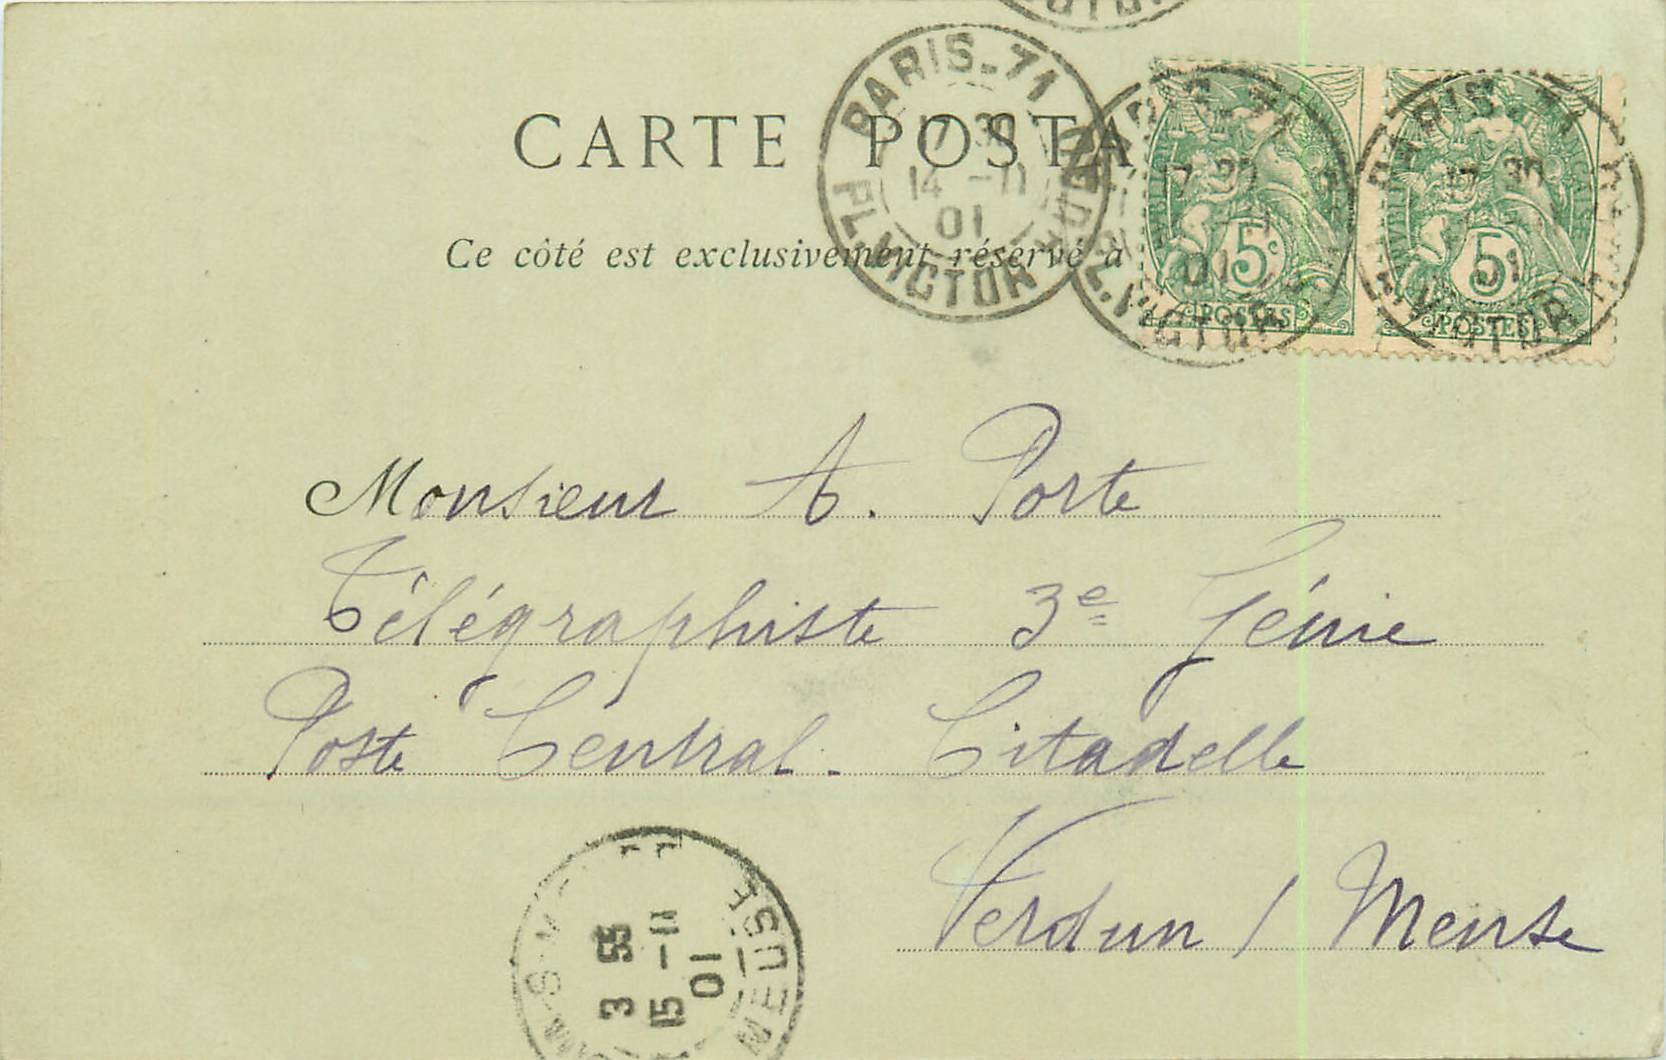 CARTE POSTA
Ce côté est exclusivement réservé à
PARIS-71
17 30
14 -11
01
PL. VICTOR HUGO
17 30
01
PL. VICTOR
5c
POSTES
PARIS-71
17 30
01
VICTOR
5c
POSTES
Monsieur A. Porte
Télégraphiste 3e Génie
Poste Central. Citadelle
Verdun / Meuse
3 55
15 -11
01
MEUSE